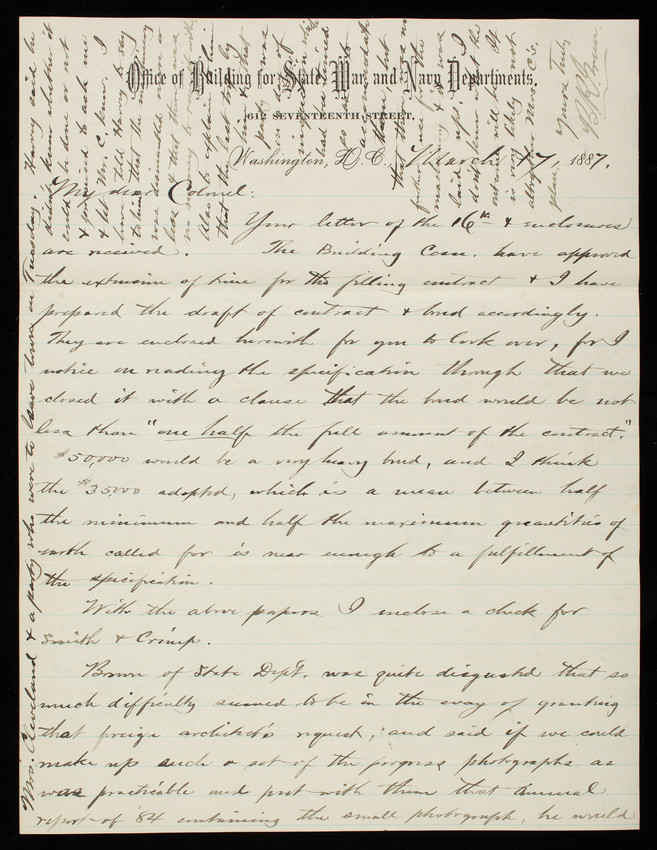 Office of Building for State, War, and Navy Departments.
612 SEVENTEENTH STREET,
Washington, D.C., March 17, 1887.
My dear Colonel:
Your letter of the 16th & enclosures
are received. The Building Com. have approved
the extension of time for the filling contract & I have
prepared the draft of contract & bond accordingly.
They are enclosed herewith for you to look over, for I
notice on reading the specification through that we
closed it with a clause that the bond would be not
less than "one half the full amount of the contract".
$50,000 would be a very heavy bond, and I think
the $35,000 adopted, which is a mean between half
the minimum and half the maximum quantities of
earth called for is near enough to a fulfillment of
the specification.
With the above papers I inclose a check for
Smith & Crimp.
Brown of State Dept. was quite disgusted that so
much difficulty seemed to be in the way of granting
that foreign architect's request, and said if we could
make up such a set of the progress photographs as
was practicable and put with them that annual
report of '84 containing the small photograph, he would
Mrs. Cleveland & a party who were to leave town on Tuesday. Harvey said he
didn't know whether it
could be done or not
& promised to ask me
& let Mr. C. know. I
have told Harvey to say
to him that the
was dismantled
& that there was
no
Also to explain to him
that
him & that
party was
in
had
so as to
accommodate
them, but
that
further
I was
laid up. I
don't know what the
outcome will be. It
is very likely not
altogether Mrs. C's.
place.
Yours Truly